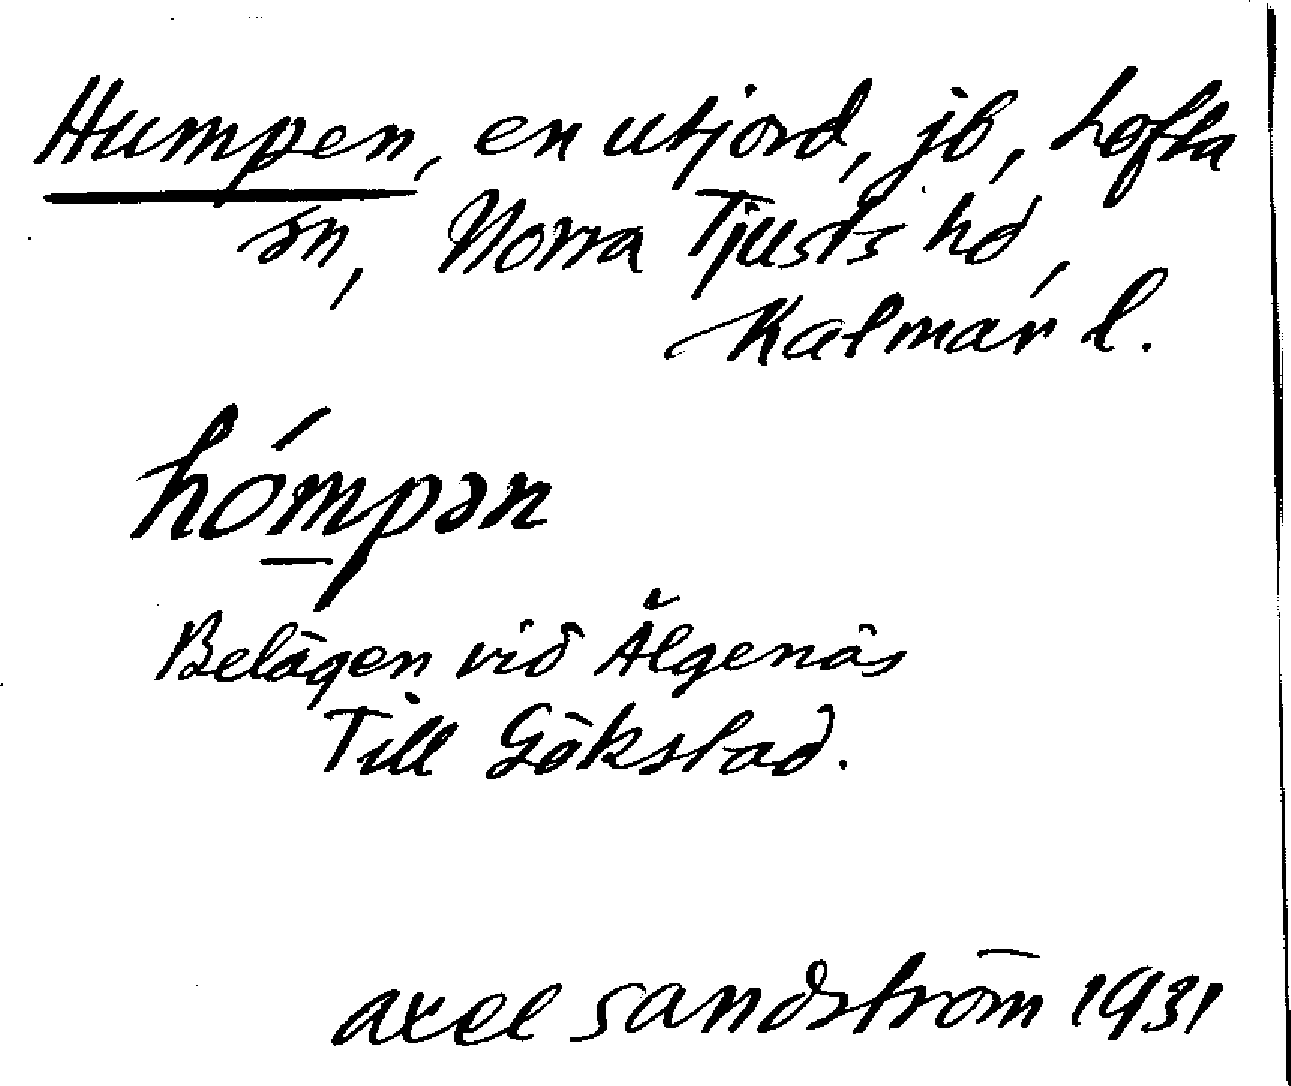 Humpen, en utjord, jb, Lofta
sn, Norra Tjusts hd,
Kalmar l.
hómpən
Belägen vid Älgenäs
Till Gökstad.
axel Sandström 1931